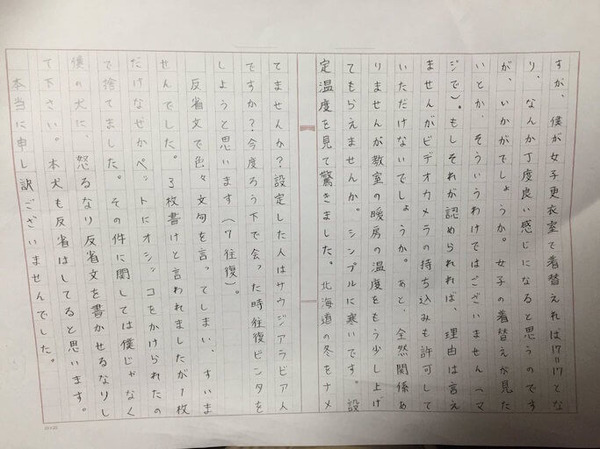 すが、僕が女子更衣室で着替えれば17=17とな
り、なんか丁度良い感じになると思うのです
が、いかがでしょうか。女子の着替えが見た
いとか、そういうわけではございません（マ
ジで）。もしそれが認められれば、理由は言え
ませんがビデオカメラの持ち込みも許可して
いただけないでしょうか。あと、全然関係あ
りませんが教室の暖房の温度をもう少し上げ
てもらえませんか。シンプルに寒いです。設
定温度を見て驚きました。北海道の冬をナメ
てませんか？設定した人はサウジアラビア人
ですか？今度ろう下で会った時往復ビンタを
しようと思います（7往復）。
反省文で色々文句を言ってしまい、すいま
せんでした。3枚書けと言われましたが1枚
だけなぜかペットにオシッコをかけられたの
で捨てました。その件に関しては僕じゃなく
後の犬に怒るなり反省文を書かせるなりし
て下さい。本犬も反省はしてると思います。
本当に申し訳ございませんでした。